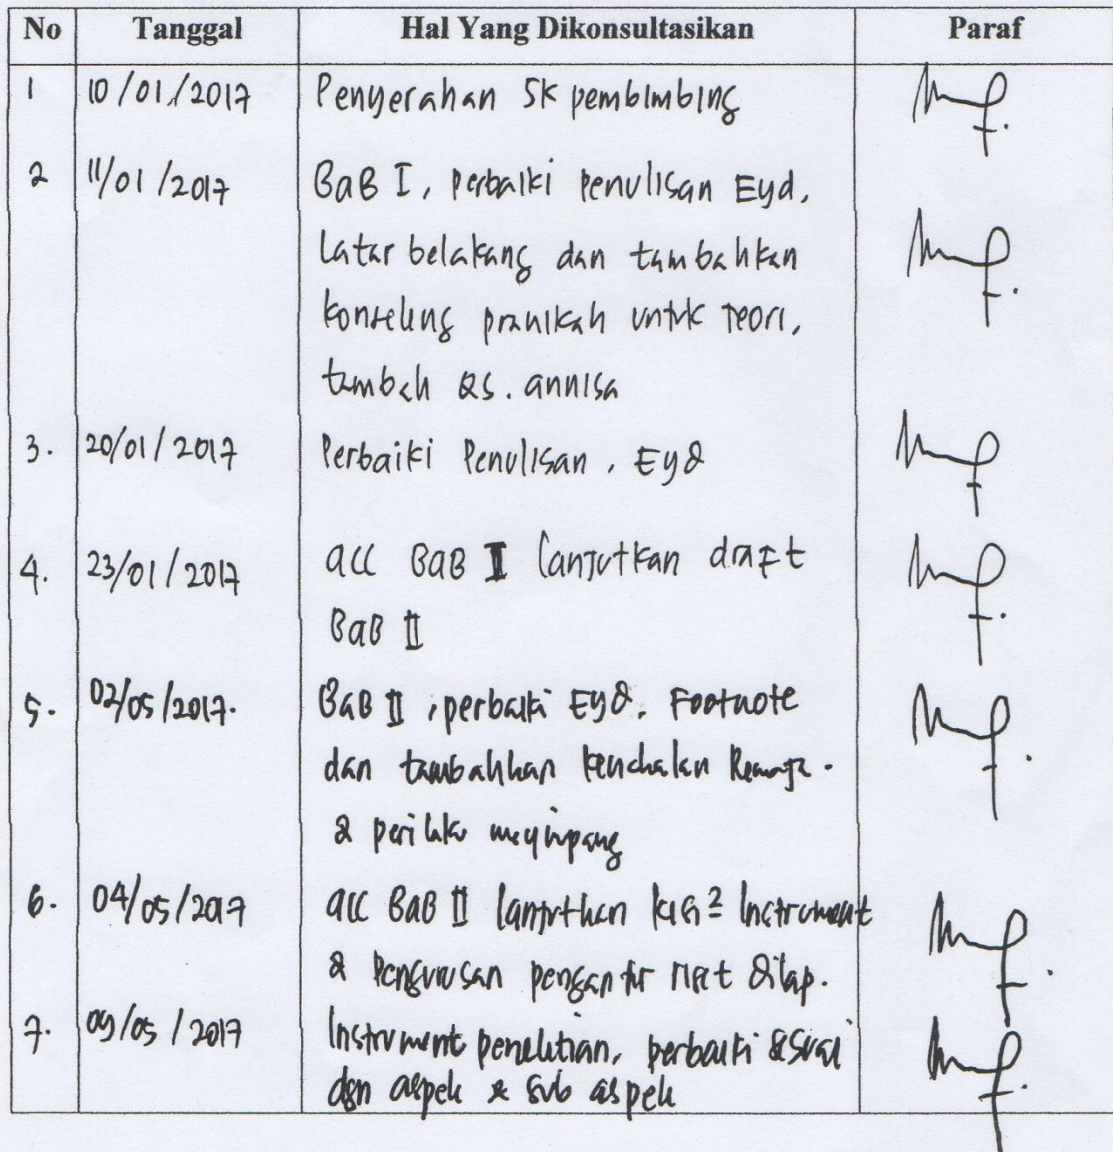 No Tanggal Hal Yang Dikonsultasikan Paraf
1 10/01/2017 Penyerahan SK pembimbing
2 11/01/2017 BaB I, perbaiki penulisan Eyd,
Latar belakang dan tambahkan
konseling pranikah untuk Teori,
tambah QS. annisa
3. 20/01/2017 Perbaiki Penulisan, Eyd
4. 23/01/2017 acc BaB I lanjutkan draft
BaB II
5. 02/05/2017. BaB II, perbaiki Eyd, Footnote
dan tambahkan kenakalan Remaja.
& perilaku menyimpang
6. 04/05/2017 acc BaB II lanjutkan kisi2 Instrument
& Pengurusan pengantar riset dilap.
7. 09/05/2017 Instrument penelitian, perbaiki sesuai
dgn aspek & sub aspek